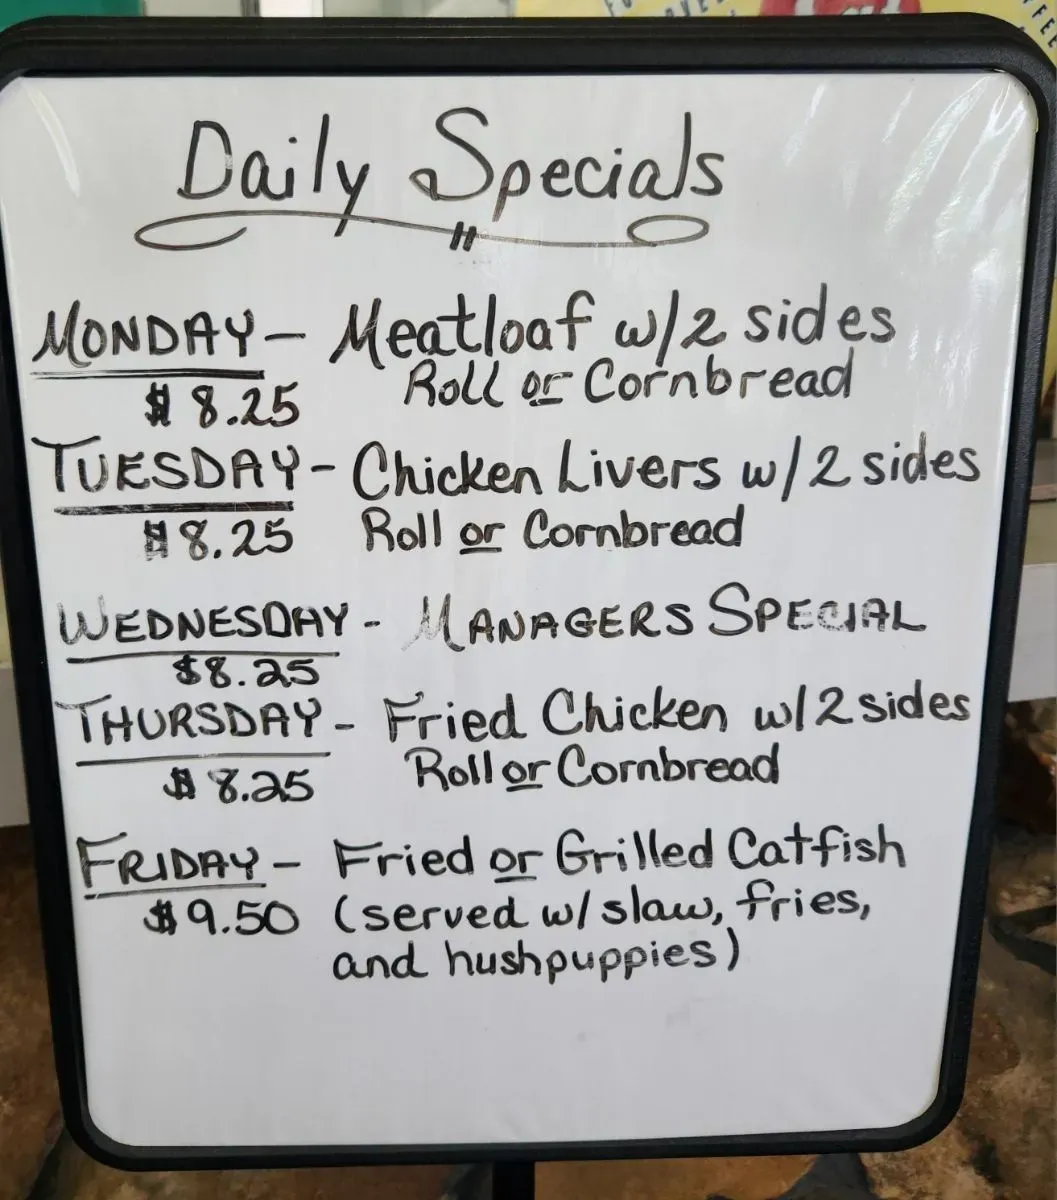 Daily Specials
MONDAY - Meatloaf w/2 sides
$8.25 Roll or Cornbread
TUESDAY - Chicken Livers w/2 sides
$8.25 Roll or Cornbread
WEDNESDAY - MANAGERS SPECIAL
$8.25
THURSDAY - Fried Chicken w/2 sides
$8.25 Roll or Cornbread
FRIDAY - Fried or Grilled Catfish
$9.50 (served w/ slaw, fries,
and hushpuppies)